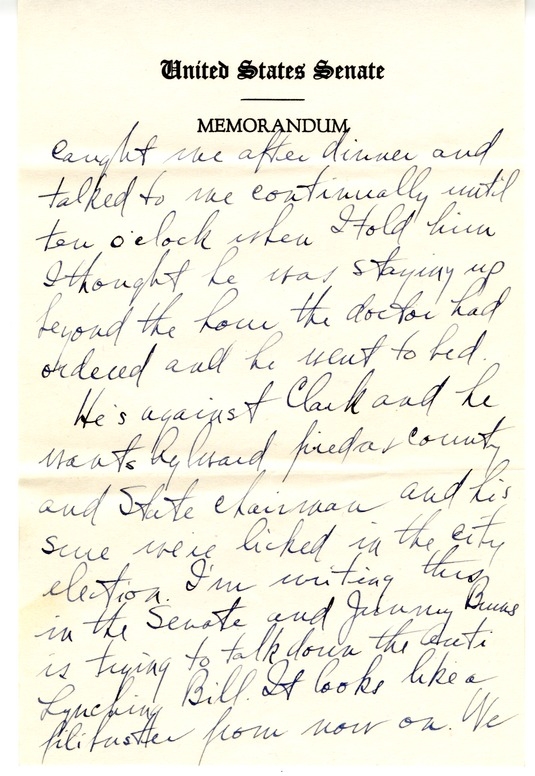 United States Senate
MEMORANDUM
caught me after dinner and
talked to me continually until
ten o'clock when I told him
I thought he was staying up
beyond the hour the doctor had
ordered and he went to bed.
He's against Clark and he
wants Aylward fired as county
and State chairman and his
sure we're licked in the city
election. I'm writing this
in the Senate and Jimmy Byrnes
is trying to talk down the anti
Lynching Bill. It looks like a
filibuster from now on. We